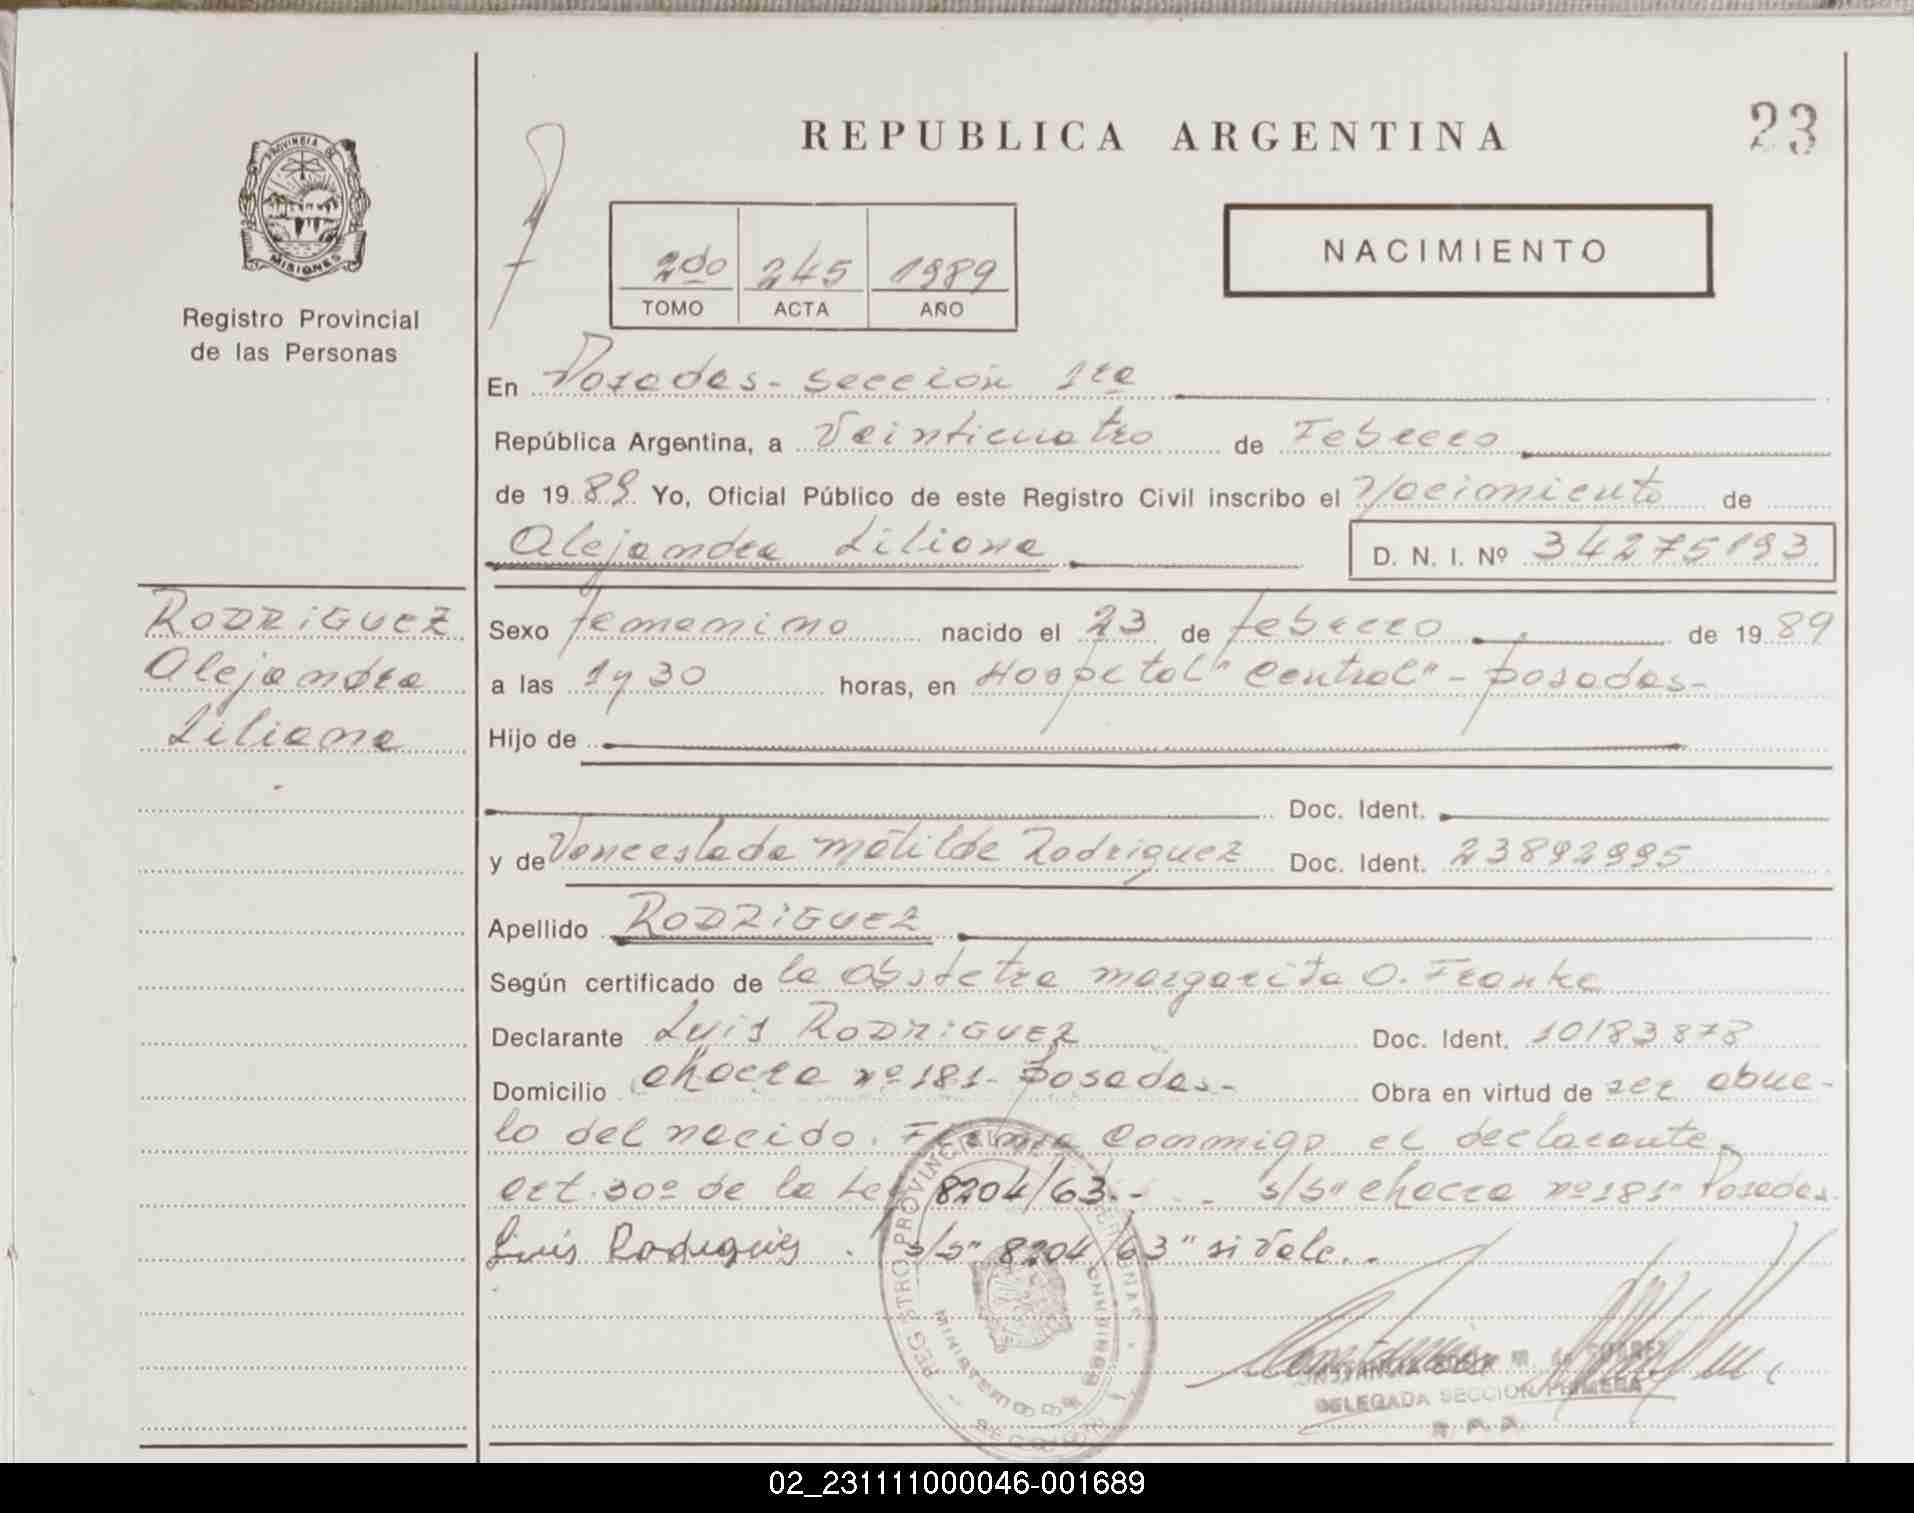 REPUBLICA ARGENTINA
23
PROVINCIA DE
MISIONES
Registro Provincial
de las Personas
2do 245 1989
TOMO ACTA AÑO
NACIMIENTO
En Posadas - sección 1ra
República Argentina, a Veinticuatro de Febrero
de 1989 Yo, Oficial Público de este Registro Civil inscribo el Nacimiento de
Alejandra Liliana
D. N. I. Nº 34275193
RODRiGUEZ
Alejandra
Liliana
Sexo femenino nacido el 23 de febrero de 1989
a las 1 y 30 horas, en Hospital "Central" - posadas-
Hijo de
Doc. Ident.
y de Venceslada Matilde Rodriguez Doc. Ident. 23892995
Apellido RODRiGUEZ
Según certificado de la Obstetra margarita O. Franke
Declarante Luis RODRiGUEZ Doc. Ident. 10183878
Domicilio chacra nº 181- posadas- Obra en virtud de ser abue-
lo del nacido. Firma Conmmigo el declarante
art. 30º de la Ley 8204/63.- - s/s" chacra nº 181" Posadas.
Luis Rodrigues . s/s" 8204/63" si Vale..
DELEGADA SECCION PRIMERA
02_231111000046-001689